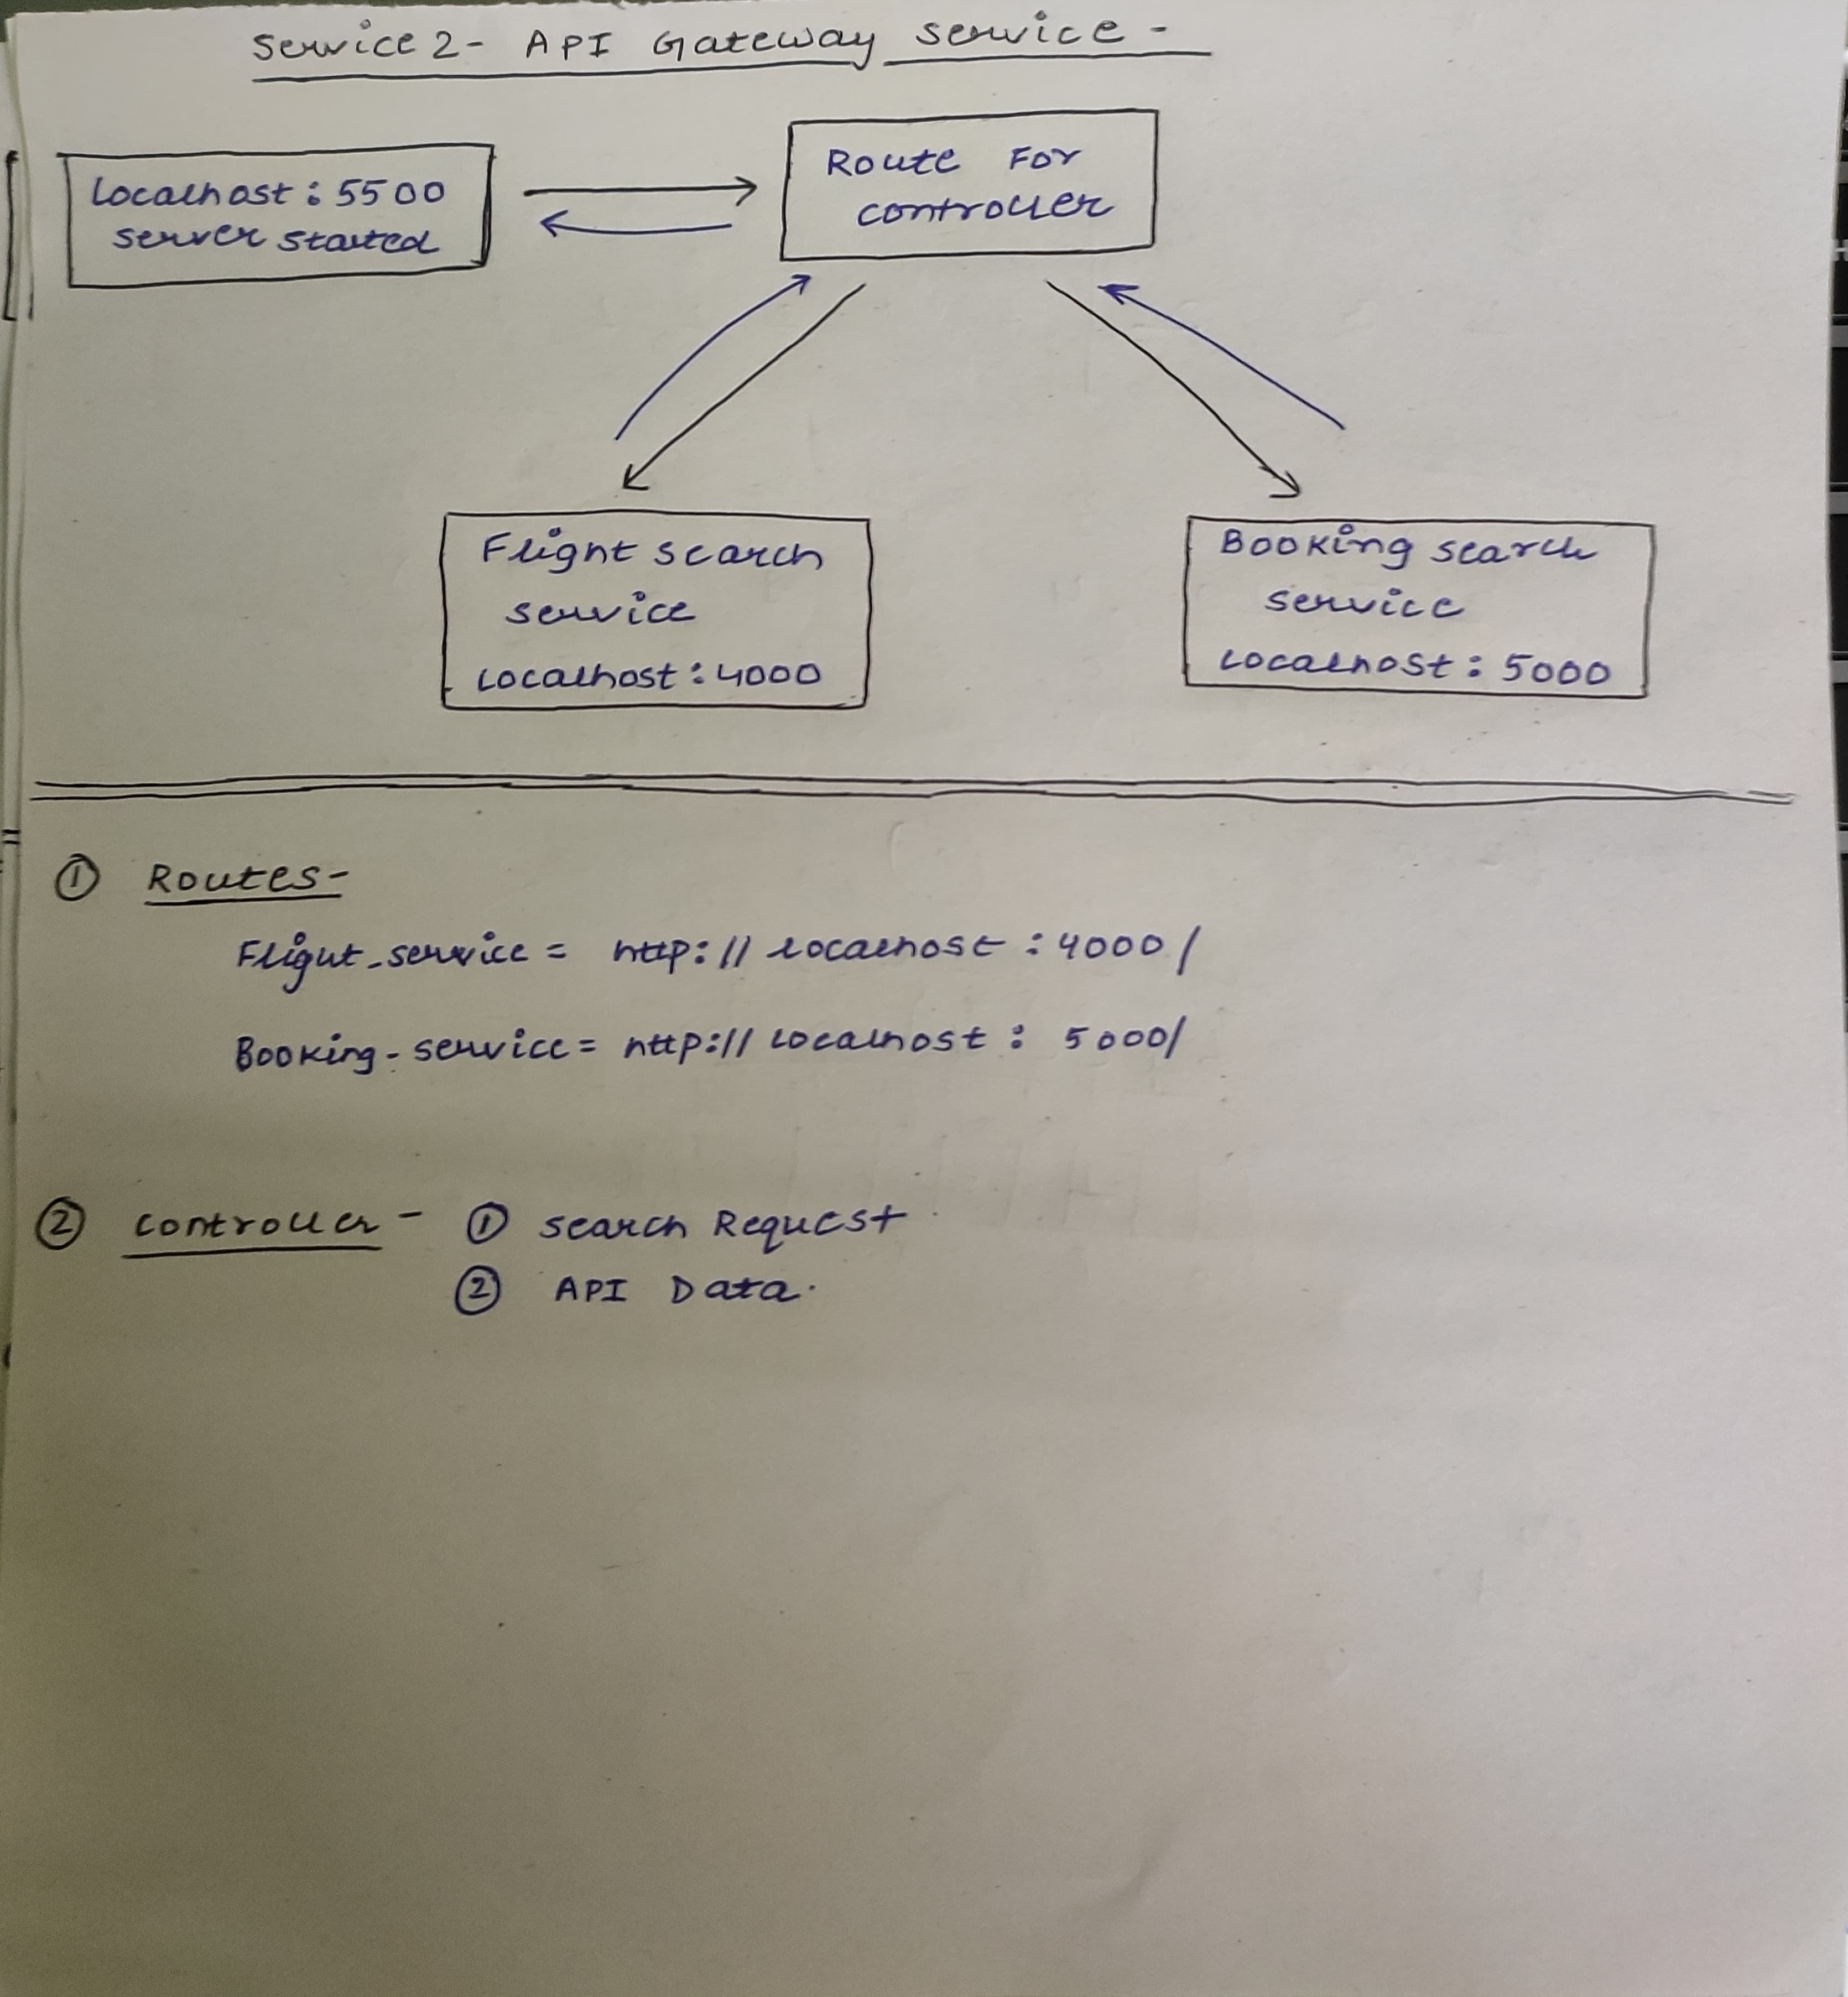 Service 2 - API Gateway Service -
Localhost : 5500
server started
Route For
controller
Flight search
service
Localhost : 4000
Booking search
service
Localhost : 5000
① Routes -
Flight_service = http://localhost : 4000/
Booking-service = http://localhost : 5000/
② controller - ① search Request
② API Data.